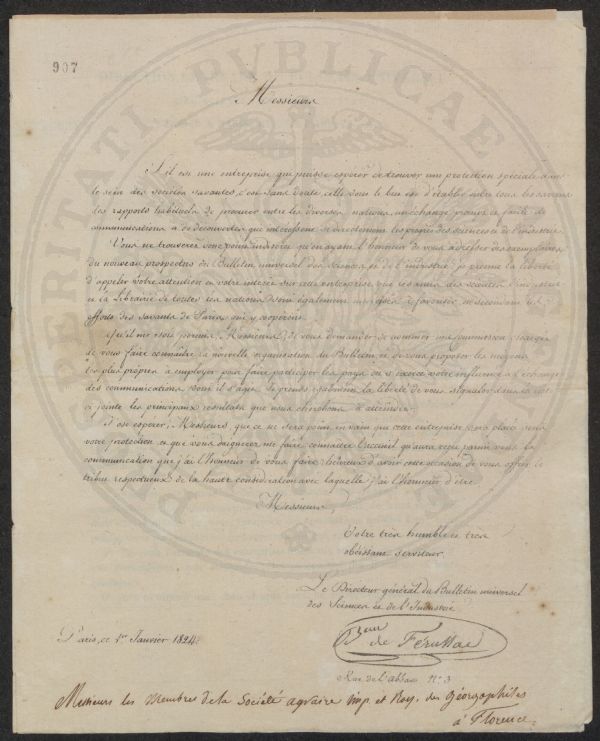 907
Messieurs
S'il est une entreprise qui puisse espérer de trouver une protection spéciale dans
le sein des sociétés savantes, c'est sans doute celle dont le but est d'établir entre tous les savans
des rapports habituels de procurer entre les diverses nations, un échange prompt et facile de
communications et de découvertes qui intéressent si directement les progrès des sciences et de l'industrie.
Vous ne trouverez donc point indiscret qu'en ayant l'honneur de vous adresser des exemplaires
du nouveau prospectus du Bulletin universel des Sciences et de l'industrie, je prenne la liberté
d'appeler votre attention et votre intérêt sur cette entreprise que les amis des sciences, l'industrie
et la Librairie de toutes les nations sont également à favoriser, en secondant les
efforts des savants de Paris qui y coopèrent.
Qu'il me soit permis, Messieurs, de vous demander de nommer une commission chargée
de vous faire connaître la nouvelle organisation du Bulletin, et de vous proposer les moyens
les plus propres à employer pour faire participer les pays où s'exerce votre influence à l'échange
des communications dont il s'agit. Je prends également la liberté de vous signaler dans la note
ci jointe les principaux résultats que nous cherchons à atteindre.
J'ose espérer, Messieurs, que ce ne sera point en vain que cette entreprise sera placée sous
votre protection et que vous daignerez me faire connaître l'accueil qu'aura reçu parmi vous la
communication que j'ai l'honneur de vous faire, heureux d'avoir cette occasion de vous offrir le
tribut respectueux de la haute considération avec laquelle j'ai l'honneur d'être
Messieurs,
Votre très humble et très
obéissant serviteur,
Le Directeur général du Bulletin universel
des Sciences et de l'Industrie
Paris, ce 1er Janvier 1824
Bon de Férussac
Rue de l'abbaye N.º 3
Messieurs les Membres de la Société agraire Imp. et Roy. des Géorgophiles
à Florence.
PROSPERITATI PVBLICAE